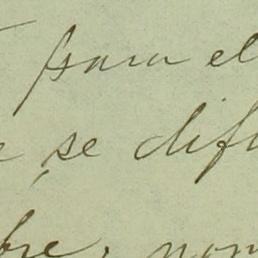 para el
se dif
bre, nom